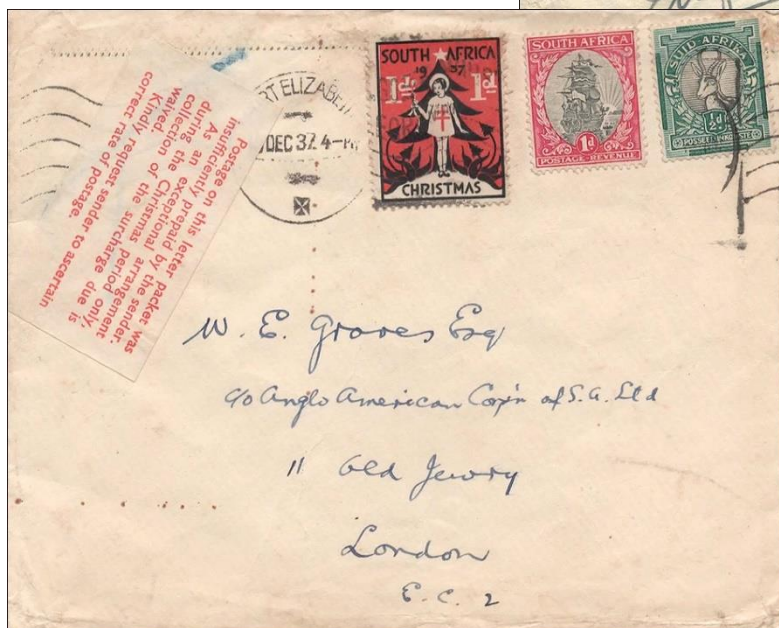 Postage on this letter packet was
insufficiently prepaid by the sender.
As an exceptional arrangement
during the Christmas period only,
collection of the surcharge due is
waived. Kindly request sender to ascertain
correct rate of postage.
RT ELIZABE
DEC 37. 4-P
SOUTH AFRICA
1937
1d 1d
CHRISTMAS
SOUTH AFRICA
1d
POSTAGE-REVENUE
SUID AFRIKA
½d
W. E. Groves Esq
c/o Anglo American Cop'n of S.A. Ltd
11 Old Jewry
London
E. C. 2